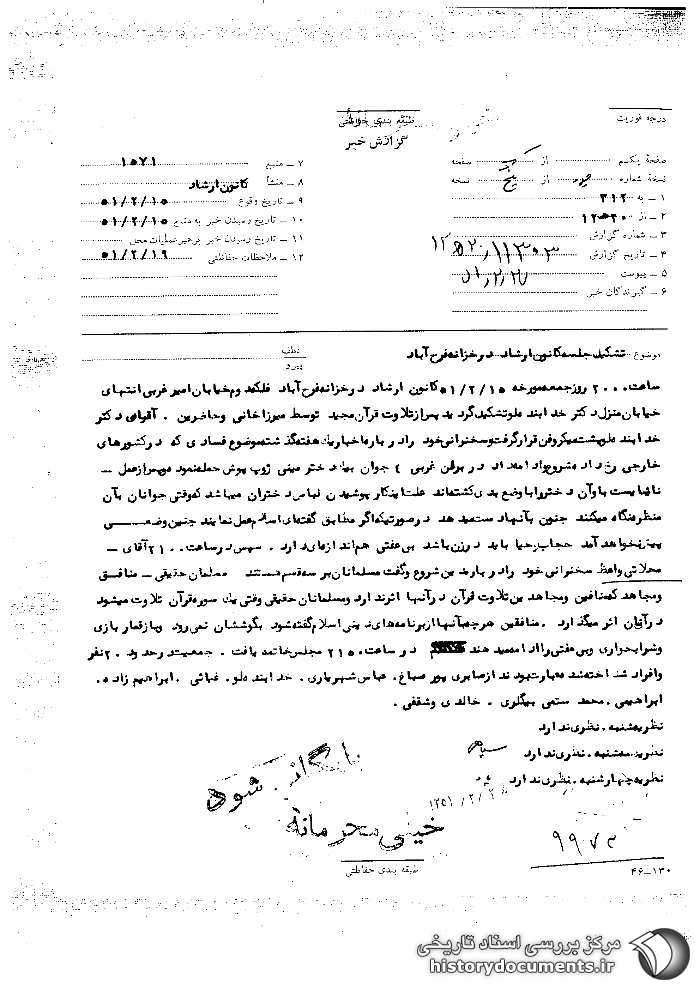 درجه فوریت
طبقه بندی حفاظتی
گزارش خبر
صفحهٔ یکم از یک صفحه
نسخهٔ شماره از پنج نسخه
۱ ـ به ۳۱۲
۲ ـ از ۲۰ه۱۲
۳ ـ شماره گزارش ۱۱۳۰۳/۲۰ه۱۲
۴ ـ تاریخ گزارش ۵۱/۲/۲۷
۵ ـ پیوست
۶ ـ گیرندگان خبر
۷ ـ منبع ۱۵۷۱
۸ ـ منشأ کانون ارشاد
۹ ـ تاریخ وقوع ۵۱/۲/۱۵
۱۰ ـ تاریخ رسیدن خبر به منبع ۵۱/۲/۱۵
۱۱ ـ تاریخ رسیدن خبر برهبر عملیات محل ۵۱/۲/۱۹
۱۲ ـ ملاحظات حفاظتی
موضوع تشکیل جلسه کانون ارشاد در خزانه فرح آباد
ساعت ۲۰۰۰ روز جمعه مورخه ۵۱/۲/۱۵ کانون ارشاد در خزانه فرح آباد فلکه دوم خیابان امیر غربی انتهای
خیابان منزل دکتر خدابنده لو تشکیل گردید پس از تلاوت قرآن مجید توسط میرزاخانی و حاضرین . آقوای دکتر
خدابنده لو پشت میکروفن قرار گرفت و سخنرانی خود را درباره اخبار یک هفته گذشته موضوع فسادی که در کشورهای
خارجی رخ داد مشروح داد امداد در برلن غربی ٤ جوان بیک دختر مینی ژوپ پوش حمله نمود و پس از عمل ـ
ناشایست با و آن دختر را با وضع بدی کشته اند علت اینکار پوشیدن لباس دختران میباشد که وقتی جوانان بآن
منظره نگاه میکنند جنون بآنها دست میدهد در صورتیکه اگر مطابق گفته های اسلام عمل نمایند چنین وضعـــی
پیش نخواهد آمد حجاب و حیا باید در زن باشد بی عفتی هم اندازه ای دارد . سپس در ساعت ۲۱۰۰ آقای ـ
محلاتی واعظ سخنرانی خود را درباره دین شروع و گفت مسلمانان بر سه قسم هستند مسلمان حقیقی ـ منافق
و مجاهد که منافین و مجاهدین تلاوت قرآن در آنها اثر ندارد و مسلمانان حقیقی وقتی یک سوره قرآن تلاوت میشود
در آنان اثر میگذارد . منافقین هر چه به آنها از برنامه های دینی اسلام گفته شود بگوششان نمی رود و باز قمار بازی
و شرابخواری و بی عفتی را ادامه میدهند در ساعت ۲۱۵۰ مجلس خاتمه یافت . جمعیت در حدود ۲۰ نفر
و افراد شناخته شده عبارت بودند از صابری پور صباغ. عباس شهریاری. خدابنده لو. غیاثی. ابراهیم زاده.
ابراهیمی. محمد ستمی بیگلوی . خالدی و شققی .
نظریه شنبه . نظری ندارد
نظریه سه شنبه . نظری ندارد
نظریه چهارشنبه . نظری ندارد
بایگانی شود
۱۳۵۱/۲/۲۸
خیلی محرمانه
طبقه بندی حفاظتی
۹۹۷۳
۴۶ـ۱۳۰
مرکز بررسی اسناد تاریخی
historydocuments.ir